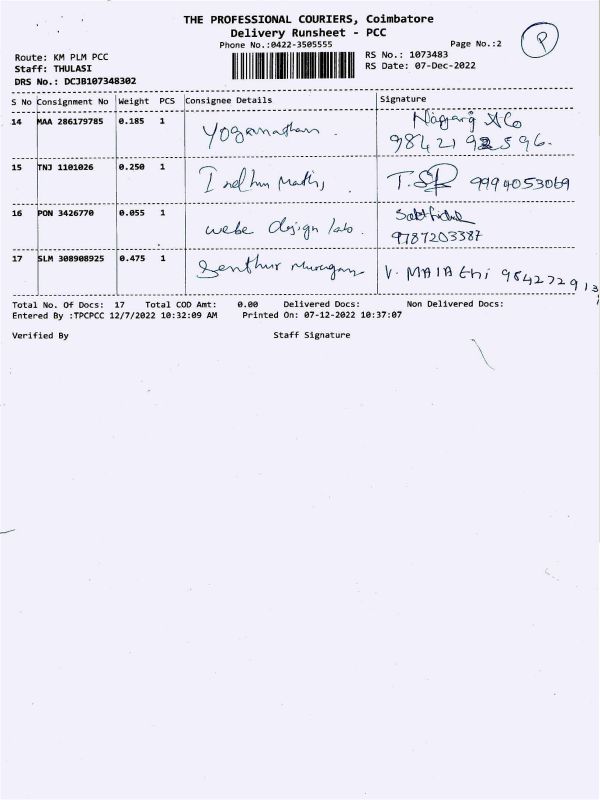 THE PROFESSIONAL COURIERS, Coimbatore
Delivery Runsheet - PCC
Phone No.:0422-3505555
Page No.:2
P
Route: KM PLM PCC
RS No.: 1073483
Staff: THULASI
RS Date: 07-Dec-2022
DRS No.: DCJB107348302
S No Consignment No Weight PCS Consignee Details Signature
14 MAA 286179785 0.185 1 Yoganathan . Nagaraj & Co
98421 92596.
15 TNJ 1101026 0.250 1 Indhu Mathi, T.SP 9994053069
16 PON 3426770 0.055 1 webe design lab.
9787203387
17 SLM 308908925 0.475 1 Senthur Murugan V. MAlAthi 984272913
Total No. Of Docs: 17 Total COD Amt: 0.00 Delivered Docs: Non Delivered Docs:
Entered By :TPCPCC 12/7/2022 10:32:09 AM Printed On: 07-12-2022 10:37:07
Verified By Staff Signature